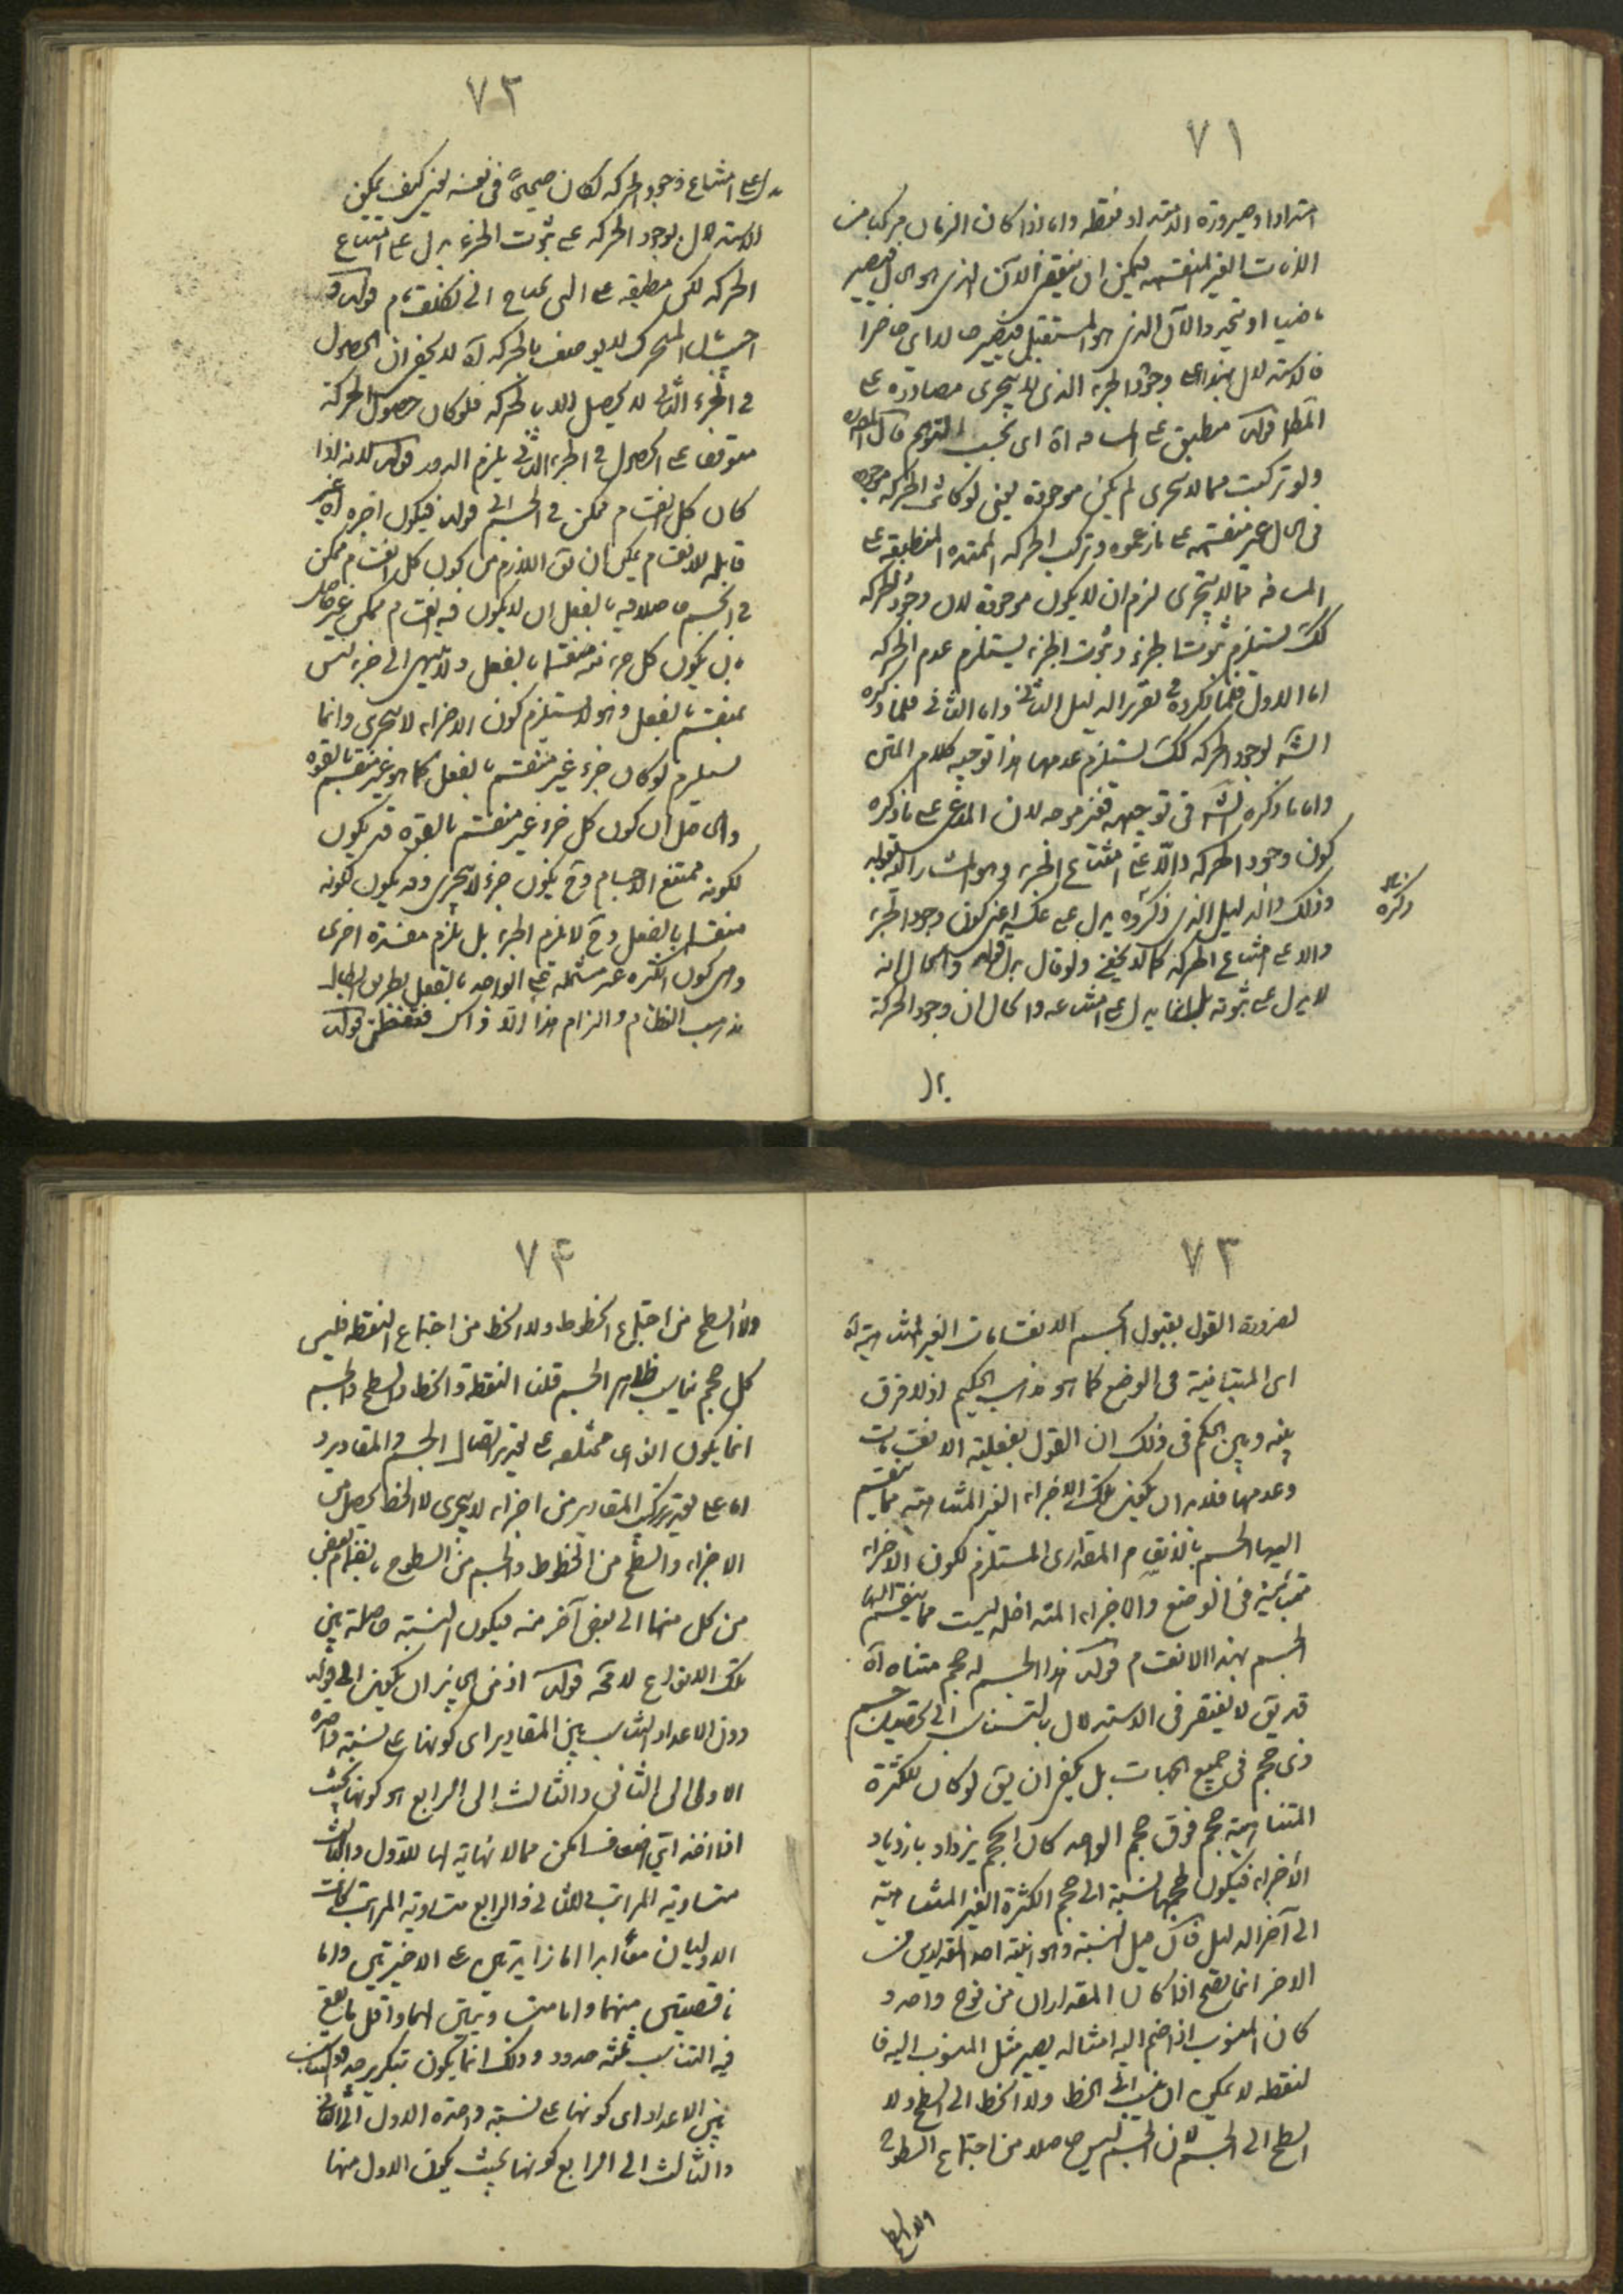 ٧١
امتدادا وصيرورة الامتداد نقطه واما اذا كان الزمان مركبا من
الانات الغير المنقسمه فيمكن ان ينقضى الآن الذى هو الحال فيصير
ماضيا او يتجدد الآن الذى هو المستقبل فيصير حالا اى حاضرا
فالاستدلال بهذا على وجود الجزء الذى لا يتجزى مصادرة على
المط قوله منطبق على المسافة اه اى بحسب التوهم قال المص
ولو تركبت مما لا يتجزى لم يكن موجودة يعنى لو كانت الحركه موجوده
فى الحال غير منقسمه على ما زعموه وتركب الحركه الممتده المنطبقه على
المسافه مما لا يتجزى لزم ان لا يكون موجودة لان وجود الحركه
كك يستلزم ثبوت الجزء وثبوت الجزء يستلزم عدم الحركه
اما الاول فلما ذكروه فى تقرير الدليل الثانى واما الثانى فلما ذكره
الش لوجود الحركه كك يستلزم عدمها هذا توجيه كلام المتن
واما ما ذكره الش فى توجيهه فغير موجه لان المدعى على ما ذكره
كون وجود الحركه دالا على امتناع الجزء وهو المشار اليه بقوله
وذلك والدليل الذى ذكروه يدل على عكسه اعنى كون وجود الجزء
دالا على امتناع الحركه كما لا يخفى ولو قال بدل قوله والحال انه
لا يدل على ثبوته بل انما يدل على امتناعه والحال ان وجود الحركة
ذكره
يدل
٧٢
يدل على امتناع وجود الحركه لكان صحيحا فى نفسه لكن كيف يمكن
الاستدلال بوجود الحركه على ثبوت الجزء يدل على امتناع
الحركه لكن مطبقه على التى تحتاج الى تكلف تام قوله و
اجيب بان المتحرك لا يوصف بالحركه اه لا يخفى ان الحصول
فى الجزء الثانى لا يحصل الا بالحركه فلو كان حصول الحركة
متوقفا على الحصول فى الجزء الثانى يلزم الدور قوله لانه اذا
كان كل انقسام ممكن فى الجسم الخ قوله فيكون اجزاءه غير
قابله للانقسام يمكن ان يق اللازم من كون كل انقسام ممكن
فى الجسم حاصلا فيه بالفعل ان لا يكون فيه انقسام ممكن غير حاصل
بل يكون كل جزء منه منقسما بالفعل ولا ينتهى الى جزء ليس
بمنقسم بالفعل وهو لا يستلزم كون الاجزاء لا يتجزى وانما
يستلزم لو كان جزء غير منقسم بالفعل كما هو غير منقسم بالقوه
والحاصل ان كون كل جزء غير منقسم بالقوه قد يكون
لكونه ممتنع الانقسام وح يكون جزء لا يتجزى وقد يكون لكونه
منقسما بالفعل وح لا يلزم الجزء بل يلزم مفسدة اخرى
وهى كون الكثره غير مشتمله على الواحد بالفعل بطريق ابطال
مذهب النظام والزام هذا الا ذاك فتفطن قوله
٧٣
لضرورة القول بقبول الجسم الانقسامات الغير المتناهية اه
اى المتباينة فى الوضع كما هو مذهب الحكيم اذ لا فرق
بينه وبين الحكم فى ذلك ان القول بفعلية الانقسامات
وعدمها فلا بد ان يكون تلك الاجزاء الغير المتناهيه مما ينقسم
اليها الجسم بالانقسام المقدارى المستلزم لكون الاجزاء
متباينة فى الوضع والاجزاء المتداخله ليست مما ينقسم اليها
الجسم بهذا الانقسام قوله هذا الجسم له حجم متناه اه
قد يق لا يفتقر فى الاستدلال بالتناسب الى تحصيل جسم
ذى حجم فى جميع الجهات بل يكفى ان يق لو كان للكثرة
المتناهية حجم فوق حجم الواحد كان الحجم يزداد بازدياد
الاجزاء فيكون لحجمها نسبة الى حجم الكثرة الغير المتناهية
الى آخر الدليل فان حصل النسبة وهو ان احد المقدارين من
الاخر انما يصح اذا كان المقداران من نوع واحد و
كان المنسوب اذا ضم اليه امثاله يصير مثل المنسوب اليه فا
لنقطه لا يمكن ان ينسب الى الخط ولا الخط الى السطح ولا
السطح الى الجسم لان الجسم ليس حاصلا من اجتماع السطوح
ولا السطح
٧٤
ولا السطح من اجتماع الخطوط ولا الخط من اجتماع النقطه فليس
كل حجم يناسب ظاهر الجسم قلنا النقطة والخط والسطح والجسم
انما يكون انواعى مختلفه على تقدير اتصال الجسم والمقادير و
اما على تقدير تركب المقادير من اجزاء لا يتجزى لا الخط يحصل من
الاجزاء والسطح من الخطوط والجسم من السطوح بانضمام بعض
من كل منها الى بعض آخر منه فيكون النسبة حاصلة بين
تلك الانواع لا محة قوله اذ من الجايز ان يكون الخ قوله
دون الاعداد التناسب بين المقادير اى كونها على نسبة واحده
الاولى الى الثانى والثالث الى الرابع هو كونها بحيث
اذا اخذ اى اضعاف امكن مما لا نهاية لها للاول والثالث
متساوية المراتب للثانى والرابع متساوية المراتب كانت
الاوليان معا ابدا اما زايدتين على الاخيرتين واما
ناقصتين منهما واما متساويتين لهما واقل ما يقع
فيه التناسب ثلثه حدود وذلك انما يكون بتكرير حد والتناسب
بين الاعداد اى كونها على نسبة واحده الاول الى الثانى
والثالث الى الرابع كونها بحيث يكون الاول منها